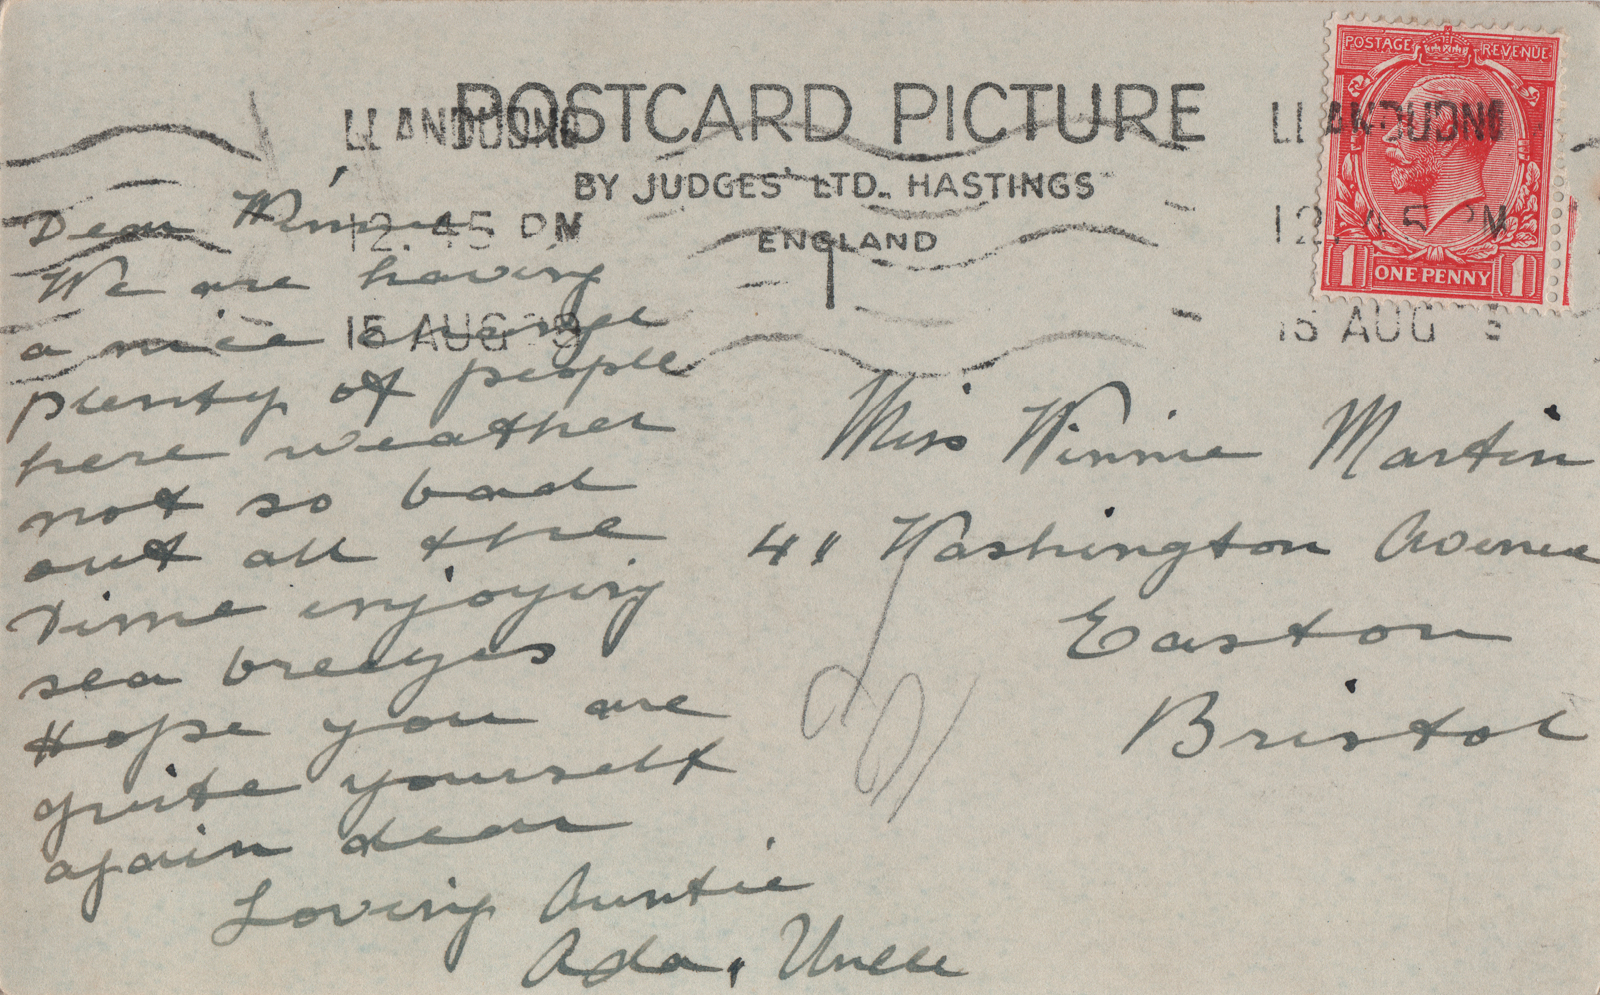 POSTCARD PICTURE
BY JUDGES' LTD. HASTINGS
ENGLAND
LLANDUDNO
12.45 PM
15 AUG
LLANDUDNO
12.45 PM
15 AUG
POSTAGE REVENUE
1 ONE PENNY 1
Dear Winnie
We are having
a nice change
plenty of people
here weather
not so bad
out all the
time enjoying
sea breezes
Hope you are
quite yourself
again dear
Loving Auntie
Ada, Uncle
Miss Winnie Martin
41 Washington Avenue
Easton
Bristol